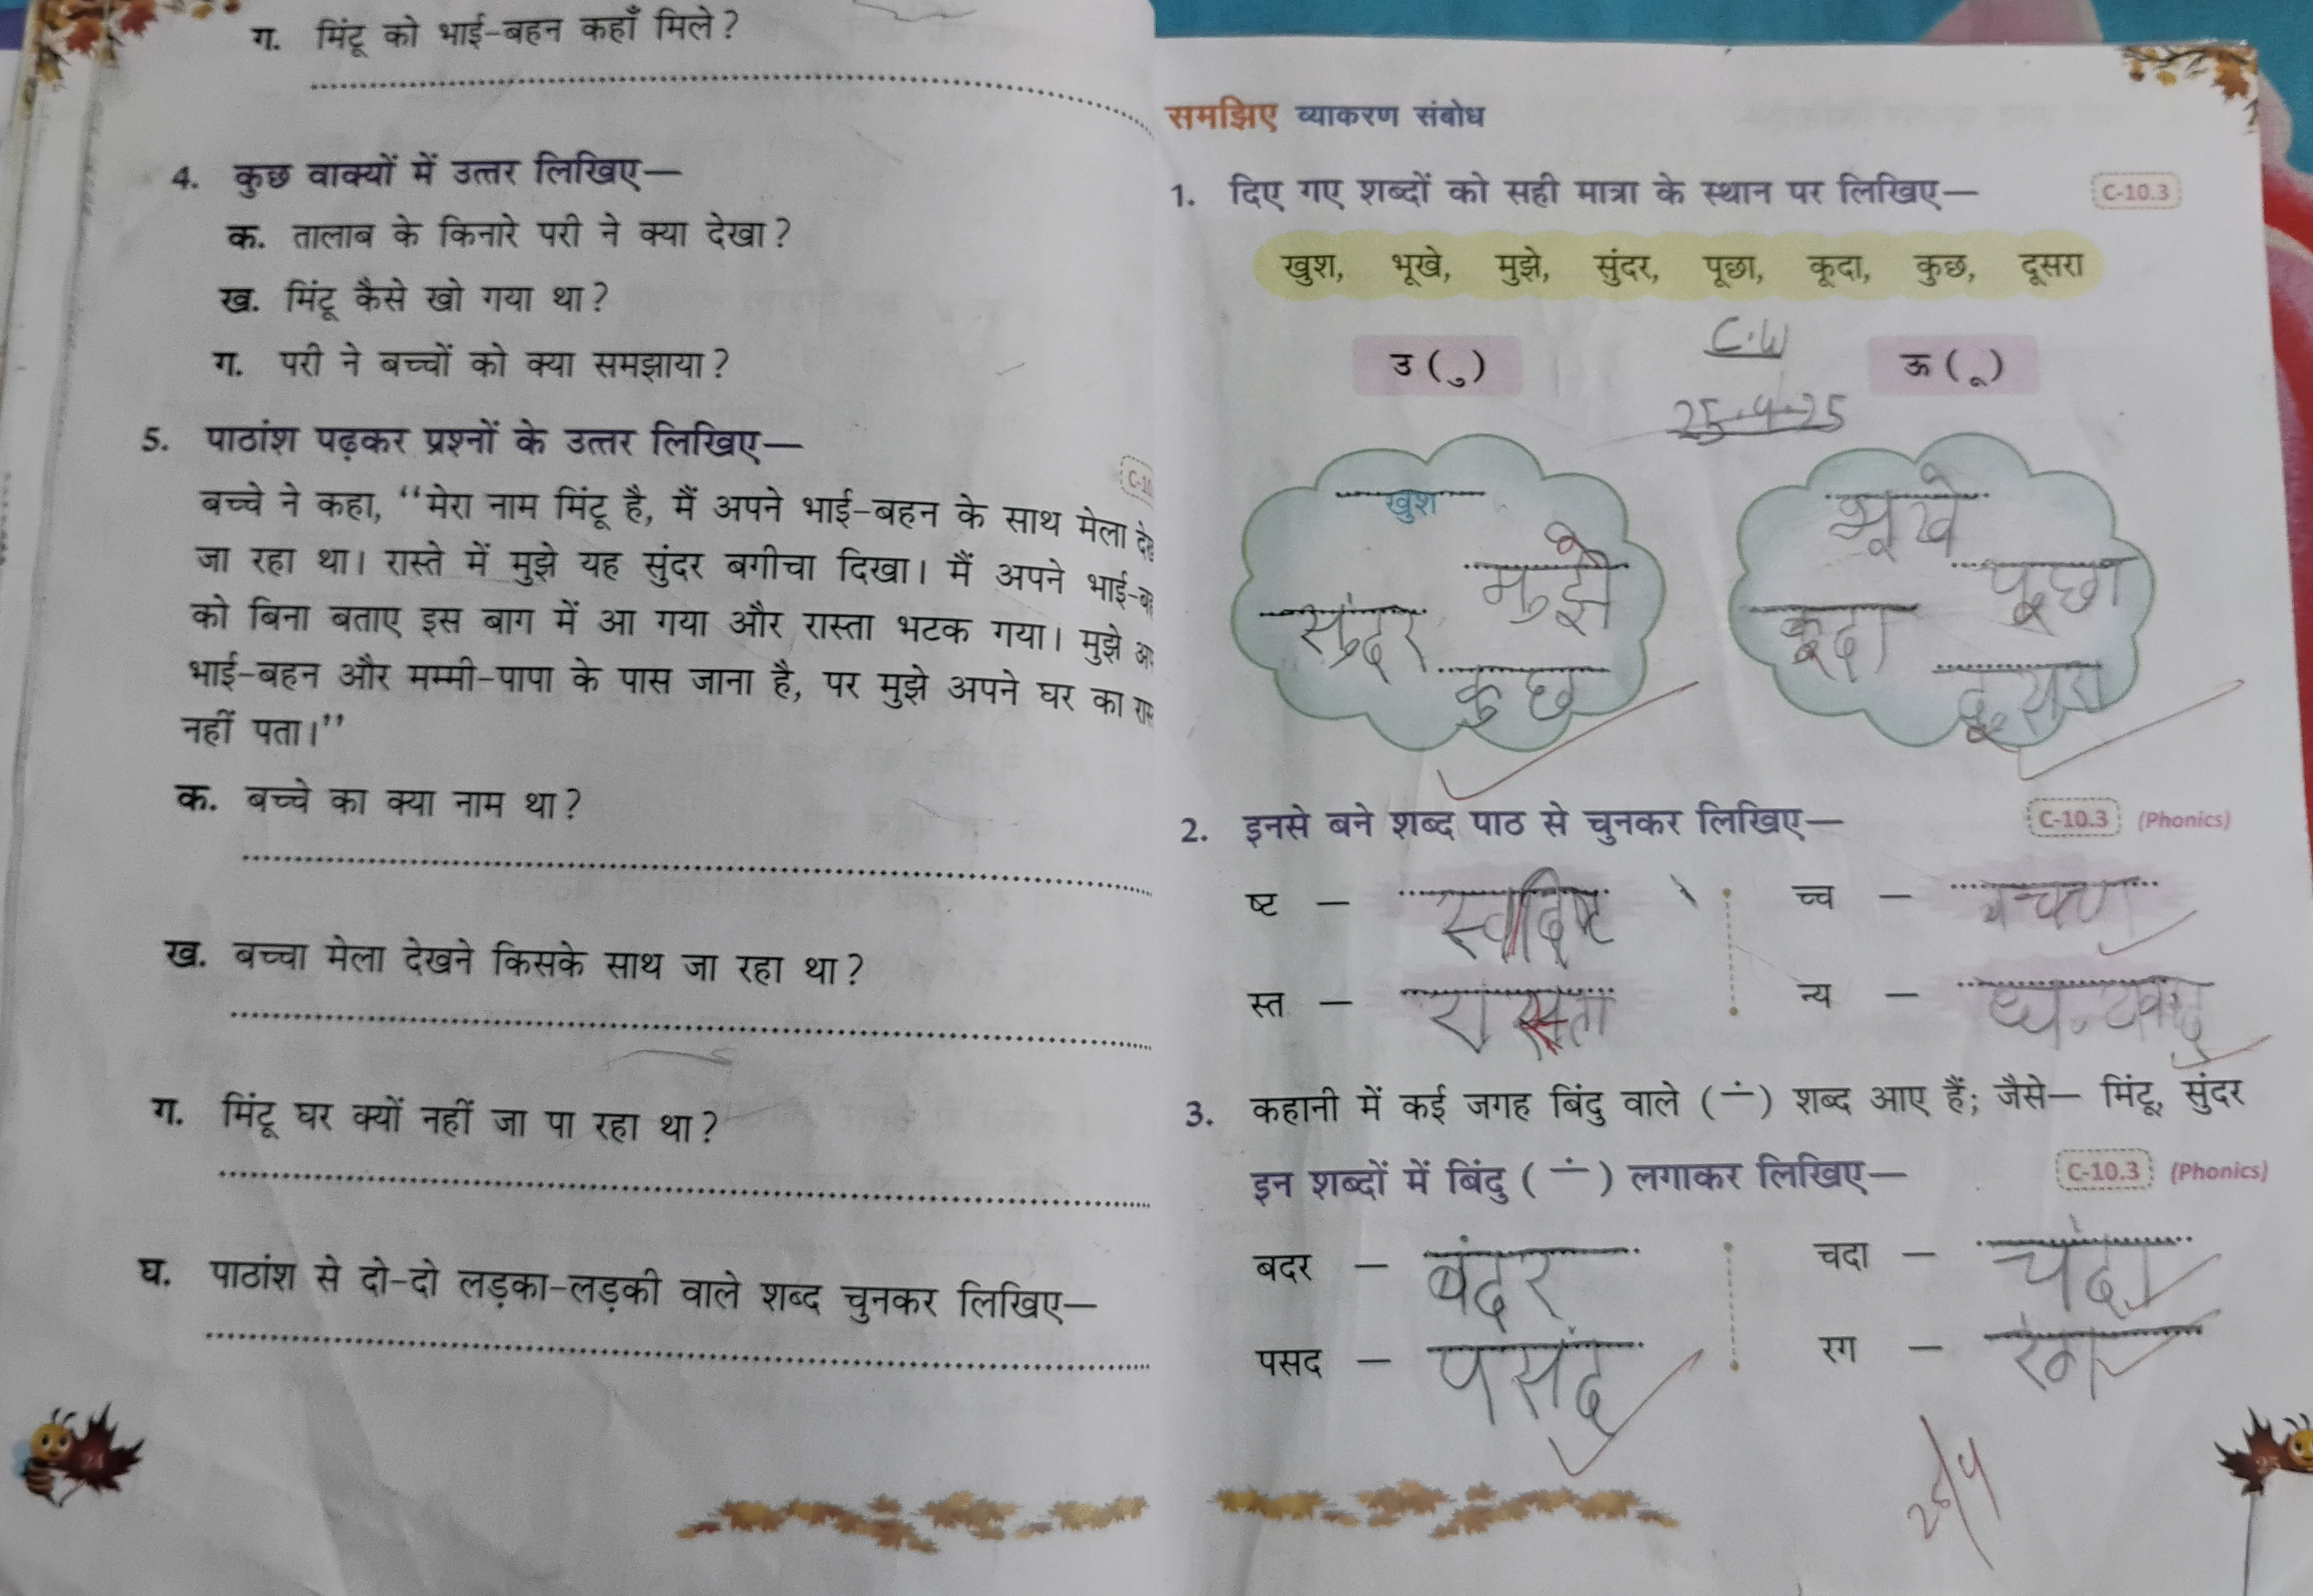 ग. मिंटू को भाई-बहन कहाँ मिले?
4. कुछ वाक्यों में उत्तर लिखिए—
क. तालाब के किनारे परी ने क्या देखा?
ख. मिंटू कैसे खो गया था?
ग. परी ने बच्चों को क्या समझाया?
5. पाठांश पढ़कर प्रश्नों के उत्तर लिखिए—
बच्चे ने कहा, “मेरा नाम मिंटू है, मैं अपने भाई-बहन के साथ मेला
जा रहा था। रास्ते में मुझे यह सुंदर बगीचा दिखा। मैं अपने
को बिना बताए इस बाग में आ गया और रास्ता भटक गया। मुझे
भाई-बहन और मम्मी-पापा के पास जाना है, पर मुझे अपने घर का
नहीं पता।”
क. बच्चे का क्या नाम था?
ख. बच्चा मेला देखने किसके साथ जा रहा था?
ग. मिंटू घर क्यों नहीं जा पा रहा था?
घ. पाठांश से दो-दो लड़का-लड़की वाले शब्द चुनकर लिखिए—
समझिए व्याकरण संबोध
1. दिए गए शब्दों को सही मात्रा के स्थान पर लिखिए— C-10.3
खुश, भूखे, मुझे, सुंदर, पूछा, कूदा, कुछ, दूसरा
C.W
उ (ु) ऊ (ू)
25.4.25
खुश भूखे
मुझे पूछा
सुंदर कूदा
कुछ दूसरा
2. इनसे बने शब्द पाठ से चुनकर लिखिए— C-10.3 (Phonics)
ष्ट — स्वादिष्ट च्च —
स्त — रास्ता न्य — धन्यवाद
3. कहानी में कई जगह बिंदु वाले (ं) शब्द आए हैं; जैसे— मिंटू, सुंदर
इन शब्दों में बिंदु (ं) लगाकर लिखिए— C-10.3 (Phonics)
बदर — बंदर चदा — चंदा
पसद — पसंद रग — रंग